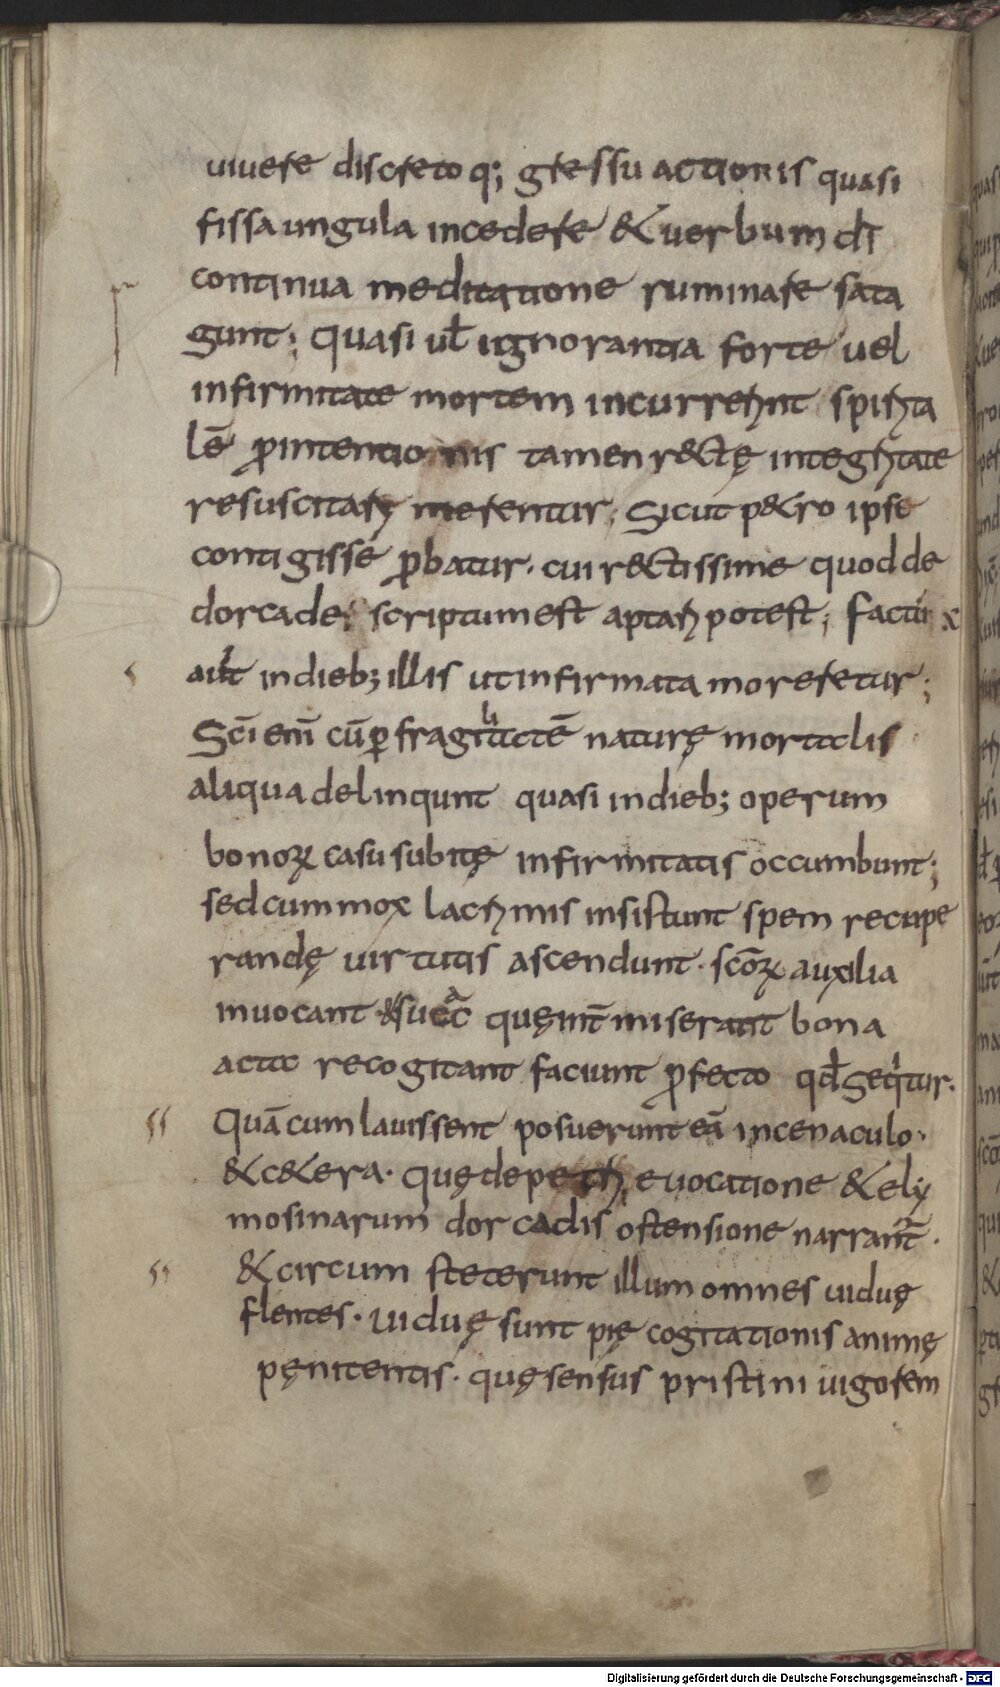 uiuere discreto q; gressu actionis quasi
fissa ungula incedere & uerbum dī
continua meditatione ruminare sata
gunt; quasi ul̄ ignorantia forte uel
infirmitate mortem incurrerint spirita
lē ꝓintentionis tamen r&ctę integritate
resuscitarę merentur; Sicut p&ro ipse
contigisse ꝓbatur. cui r&ctissime quod de
dorcade; scriptum est aptari potest; factū
aūt indieb; illis ut infirmata moreretur;
Scī enī cū ꝑ fragilitatē naturę mortalis
aliqua delinqunt quasi indieb; operum
bonoꝝ casu subitę infirmitatis occumbunt;
sed cum mox lacrimis insistunt spem recupe
randę uirtutis ascendunt. scōꝝ auxilia
inuocant quęint̄ miserant bona
acta recogitant faciunt ꝓfecto qd̄ sequitur.
Quā cum lauissent posuerunt eā incenaculo.
&c&era. quędepetri, euocatione & ely
mosinarum dorcadis ostensione narrant̄.
& circum steterunt illum omnes uiduę
flentes. uiduę sunt pię cogitationis animę
pęnitentis. quę sensus pristini uigorem
Digitalisierung gefördert durch die Deutsche Forschungsgemeinschaft - DFG